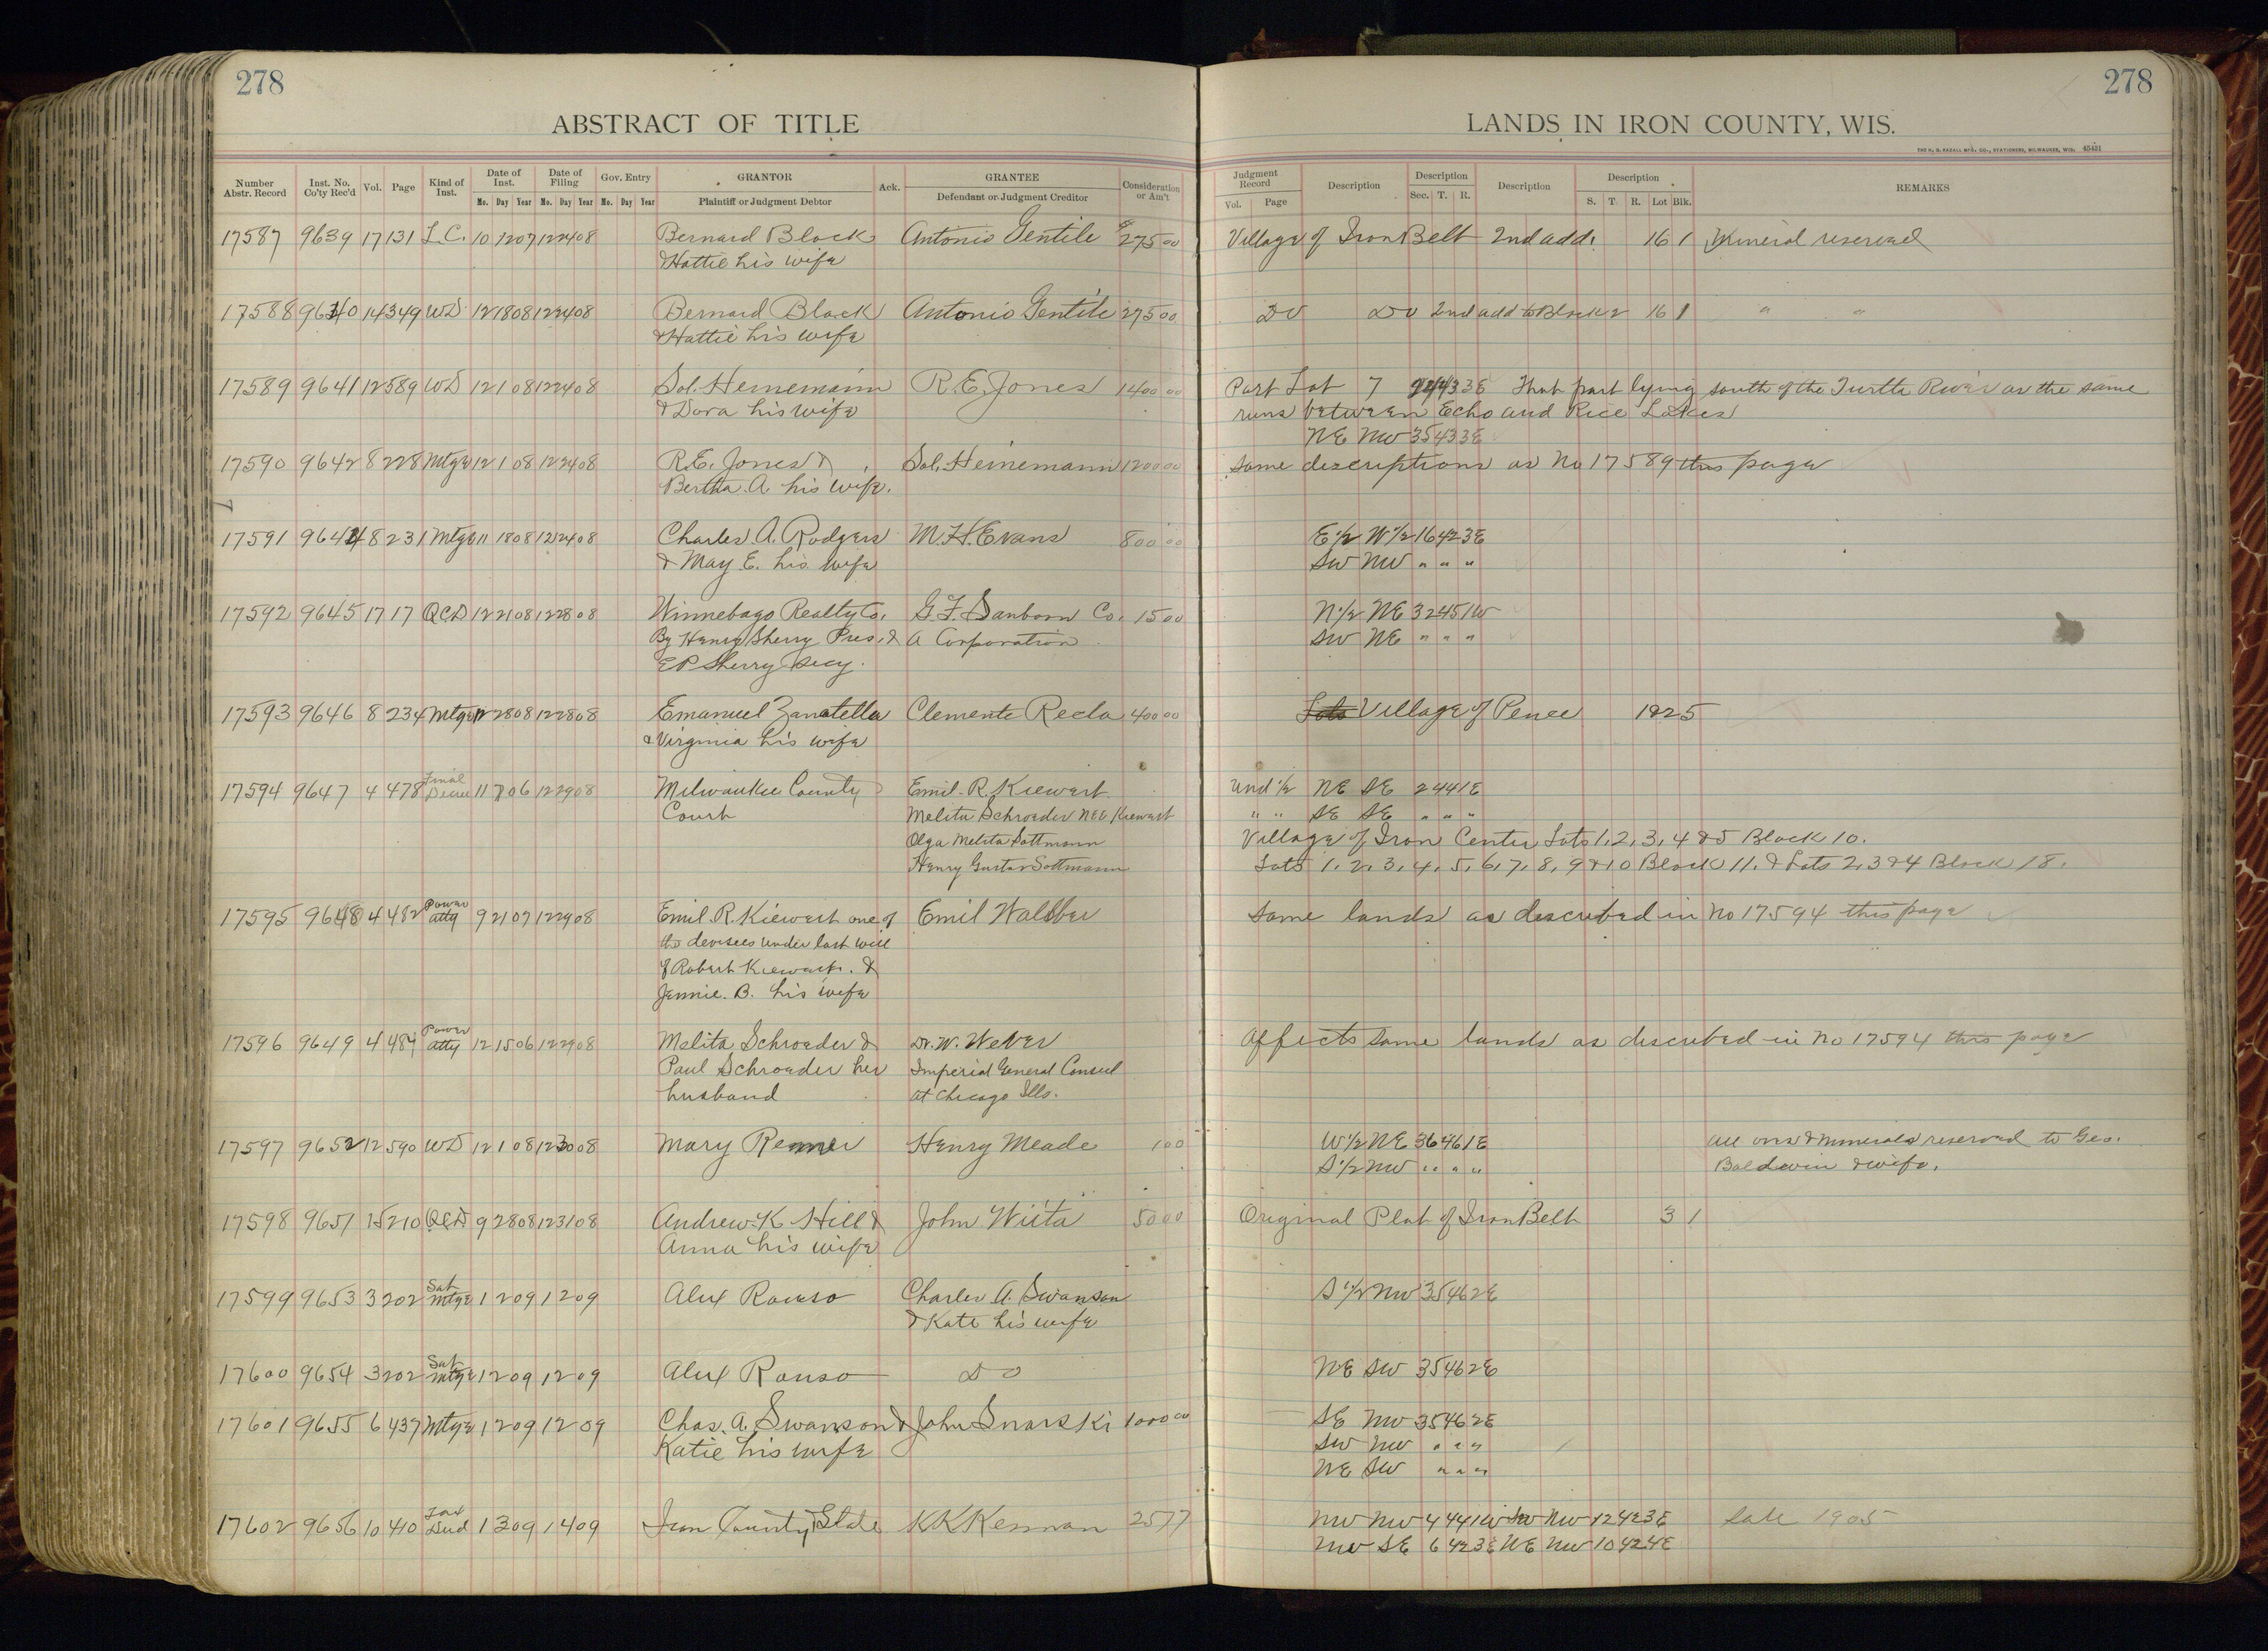 278
278
ABSTRACT OF TITLE
LANDS IN IRON COUNTY, WIS.
THE H. G. RAZALL MFG. CO., STATIONERS, MILWAUKEE, WIS. 45431
Number Abstr. Record Inst. No. Co'ty Rec'd Vol. Page Kind of Inst. Date of Inst. Mo. Day Year Date of Filing Mo. Day Year Gov. Entry Mo. Day Year GRANTOR Plaintiff or Judgment Debtor Ack. GRANTEE Defendant or Judgment Creditor Consideration or Am't
Judgment Record Vol. Page Description Description Sec. T. R. Description Description S. T. R. Lot Blk. REMARKS
17587 9639 17 131 L.C. 10 12 07 12 24 08 Bernard Block Antonio Gentile $275 00 Village of Iron Belt 2nd add. 16 1 Mineral reserved
& Hattie his wife
17588 9640 14 349 WD 12 18 08 12 24 08 Bernard Block Antonio Gentile 275 00 Do Do 2nd add to Block 2 16 1 " "
& Hattie his wife
17589 9641 12 589 WD 12 1 08 12 24 08 Sol. Heinemann R.E. Jones 1400 00 Part Lot 7 43 3E That part lying south of the Turtle River as the same
& Dora his wife runs between Echo and Rice Lakes
NE NW 35 43 3E
17590 9642 8 228 Mtge 12 1 08 12 24 08 R.E. Jones & Sol. Heinemann 1200 00 Same descriptions as No 17589 this page
Bertha. A. his wife.
17591 9644 8 231 Mtge 11 18 08 12 24 08 Charles A. Rodgers M.H. Evans 800 00 E 1/2 W 1/2 16 42 3E
& May E. his wife SW NW " " "
17592 9645 17 17 QCD 12 21 08 12 28 08 Winnebago Realty Co. G.F. Sanborn Co. 15 00 N 1/2 NE 32 45 1W
By Henry Sherry Pres. & A Corporation SW NE " " "
E P Sherry Secy.
17593 9646 8 234 Mtge 12 28 08 12 28 08 Emanuel Zanatella Clemente Recla 400 00 Lots Village of Pence 18 25
& Virginia his wife
17594 9647 4 478 Final Decree 11 7 06 12 29 08 Milwaukee County Emil. R. Kiewert Und 1/2 NE SE 24 44 1E
Court Melita Schroeder nee Kiewert " " SE SE " " "
Olga Melita Sottmann Village of Iron Center Lots 1, 2, 3, 4 & 5 Block 10.
Henry Gustav Sottmann Lots 1, 2, 3, 4, 5, 6, 7, 8, 9 & 10 Block 11. & Lots 2, 3 & 4 Block 18.
17595 9648 4 482 Power atty 9 21 07 12 29 08 Emil. R. Kiewert one of Emil Wallber Same lands as described in No 17594 this page
the devisees under last will
of Robert Kiewert. &
Jennie. B. his wife
17596 9649 4 484 Power atty 12 15 06 12 29 08 Melita Schroeder & Dr. W. Wever Affects same lands as described in No 17594 this page
Paul Schroeder her Imperial General Consul
husband at Chicago Ills.
17597 9652 12 590 WD 12 1 08 12 30 08 Mary Renner Henry Meade 1 00 W 1/2 NE 36 46 1E All ores & minerals reserved to Geo.
S 1/2 NW " " " Baldwin & wife.
17598 9651 15 210 QCD 9 28 08 12 31 08 Andrew K Hill & John Wiita 50 00 Original Plat of Iron Belt 3 1
Anna his wife
17599 9653 3 202 Sat Mtge 1 2 09 1 2 09 Alex Rouso Charles A. Swanson S 1/2 NW 35 46 2E
& Kate his wife
17600 9654 3 202 Sat Mtge 1 2 09 1 2 09 Alex Rouso Do NE SW 35 46 2E
17601 9655 6 437 Mtge 1 2 09 1 2 09 Chas. A. Swanson & John Snarski 1000 00 SE NW 35 46 2E
Katie his wife SW NW " " "
NE SW " " "
17602 9656 10 410 Tax Deed 1 3 09 1 4 09 Iron County & State K K Kennan 25 77 NW NW 4 44 1W SW NW 12 42 3E Sale 1905
NW SE 6 42 3E NE NW 10 42 4E